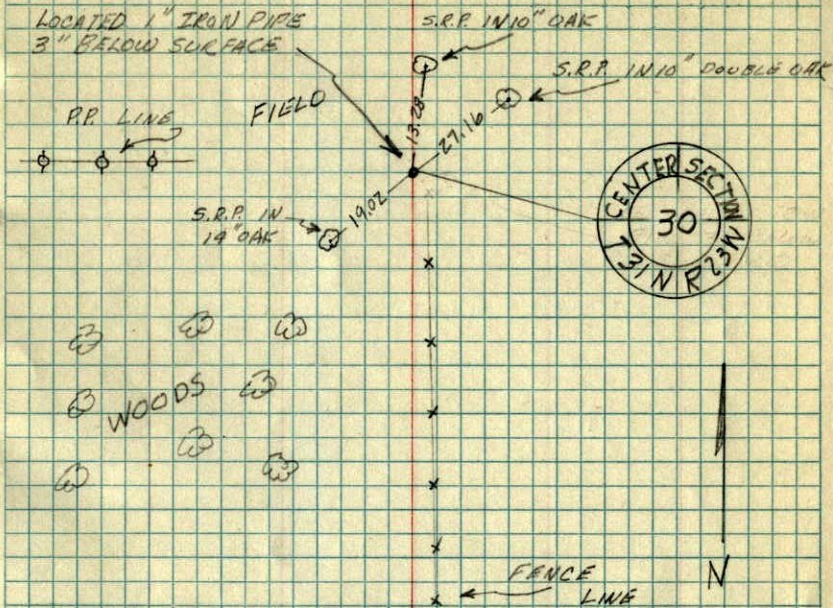 LOCATED 1" IRON PIPE
3" BELOW SURFACE
S.R.P. IN 10" OAK
S.R.P. IN 10" DOUBLE OAK
P.P. LINE
FIELD
13.28
27.16
19.02
S.R.P. IN
14" OAK
CENTER SECTION
30
T31N R23W
WOODS
FENCE
LINE
N